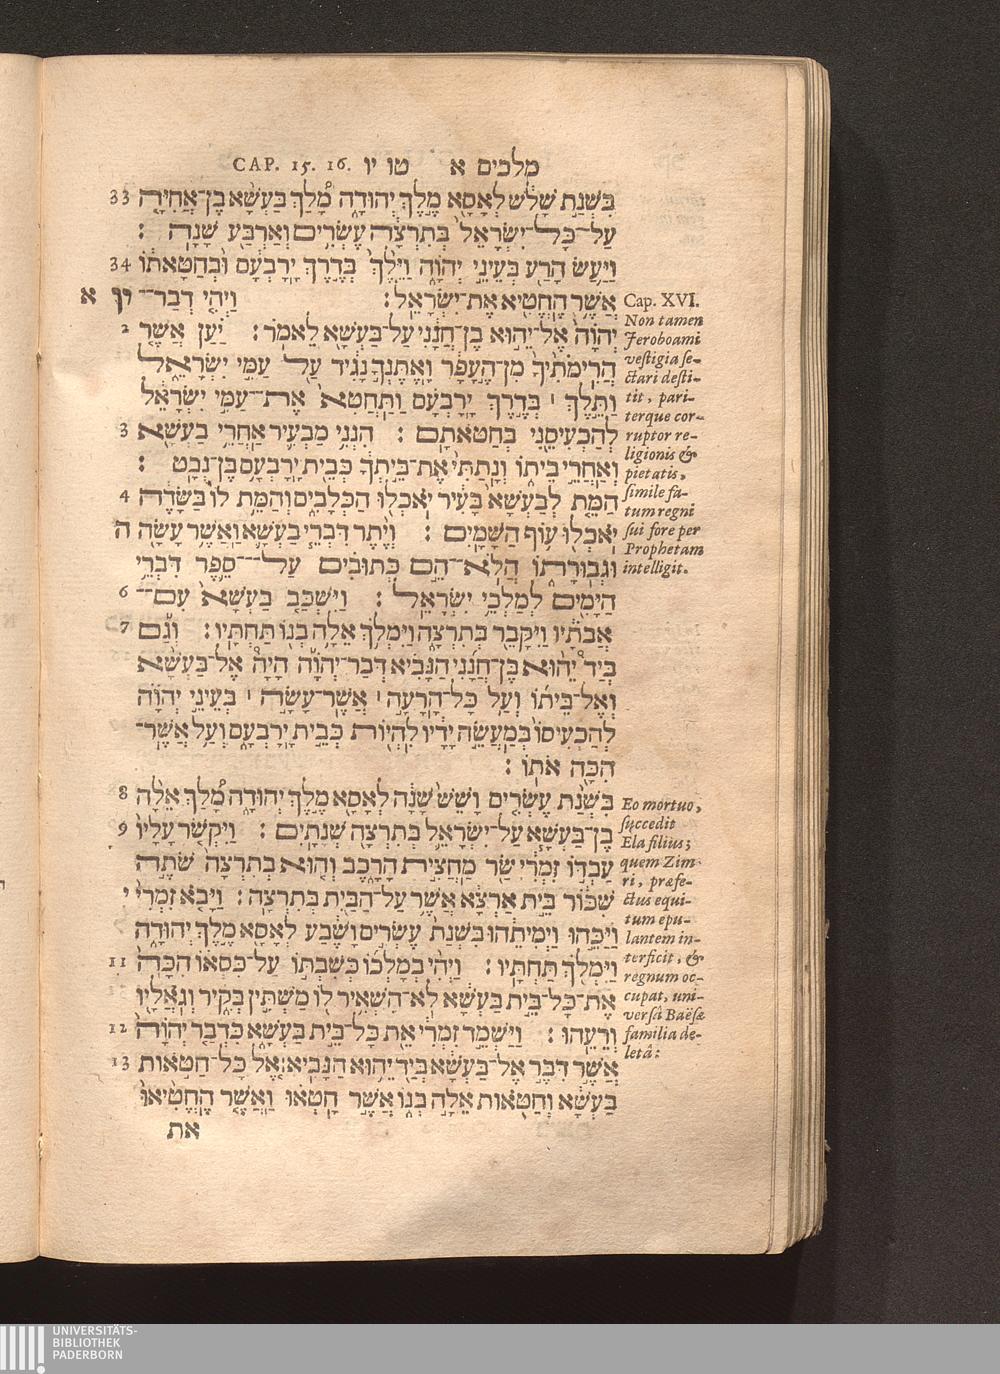 מלכים א טו יו CAP. 15. 16.
בִּשְׁנַת שָׁלֹשׁ לְאָסָא מֶלֶךְ יְהוּדָה מָלַךְ בַּעְשָׁא בֶן־אֲחִיָּה 33
עַל־כָּל־יִשְׂרָאֵל בְּתִרְצָה עֶשְׂרִים וְאַרְבַּע שָׁנָה :
וַיַּעַשׂ הָרַע בְּעֵינֵי יְהוָֹה וַיֵּלֶךְ בְּדֶרֶךְ יָרָבְעָם וּבְחַטָּאתוֹ 34
אֲשֶׁר הֶחֱטִיא אֶת־יִשְׂרָאֵל : וַיְהִי דְבַר־ יו א
יְהוָֹה אֶל־יֵהוּא בֶן־חֲנָנִי עַל־בַּעְשָׁא לֵאמֹר : יַעַן אֲשֶׁר 2
הֲרִימֹתִיךָ מִן־הֶעָפָר וָאֶתֶּנְךָ נָגִיד עַל עַמִּי יִשְׂרָאֵל
וַתֵּלֶךְ ׀ בְּדֶרֶךְ יָרָבְעָם וַתַּחֲטִא אֶת־עַמִּי יִשְׂרָאֵל
לְהַכְעִיסֵנִי בְּחַטֹּאתָם : הִנְנִי מַבְעִיר אַחֲרֵי בַעְשָׁא 3
וְאַחֲרֵי בֵיתוֹ וְנָתַתִּי אֶת־בֵּיתְךָ כְּבֵית יָרָבְעָם בֶּן־נְבָט :
הַמֵּת לְבַעְשָׁא בָּעִיר יֹאכְלוּ הַכְּלָבִים וְהַמֵּת לוֹ בַּשָּׂדֶה 4
יֹאכְלוּ עוֹף הַשָּׁמָיִם : וְיֶתֶר דִּבְרֵי בַעְשָׁא וַאֲשֶׁר עָשָׂה ה
וּגְבוּרָתוֹ הֲלֹא־הֵם כְּתוּבִים עַל־סֵפֶר דִּבְרֵי
הַיָּמִים לְמַלְכֵי יִשְׂרָאֵל : וַיִּשְׁכַּב בַּעְשָׁא עִם־ 6
אֲבֹתָיו וַיִּקָּבֵר בְּתִרְצָה וַיִּמְלֹךְ אֵלָה בְנוֹ תַּחְתָּיו : וְגַם 7
בְּיַד יֵהוּא בֶן־חֲנָנִי הַנָּבִיא דְּבַר־יְהוָֹה הָיָה אֶל־בַּעְשָׁא
וְאֶל־בֵּיתוֹ וְעַל כָּל־הָרָעָה ׀ אֲשֶׁר־עָשָׂה ׀ בְּעֵינֵי יְהוָֹה
לְהַכְעִיסוֹ בְּמַעֲשֵׂה יָדָיו לִהְיוֹת כְּבֵית יָרָבְעָם וְעַל אֲשֶׁר־
הִכָּה אֹתוֹ :
בִּשְׁנַת עֶשְׂרִים וָשֵׁשׁ שָׁנָה לְאָסָא מֶלֶךְ יְהוּדָה מָלַךְ אֵלָה 8
בֶן־בַּעְשָׁא עַל־יִשְׂרָאֵל בְּתִרְצָה שְׁנָתָיִם : וַיִּקְשֹׁר עָלָיו 9
עַבְדּוֹ זִמְרִי שַׂר מַחֲצִית הָרָכֶב וְהוּא בְתִרְצָה שֹׁתֶה
שִׁכּוֹר בֵּית אַרְצָא אֲשֶׁר עַל־הַבַּיִת בְּתִרְצָה : וַיָּבֹא זִמְרִי י
וַיַּכֵּהוּ וַיְמִיתֵהוּ בִּשְׁנַת עֶשְׂרִים וָשֶׁבַע לְאָסָא מֶלֶךְ יְהוּדָה
וַיִּמְלֹךְ תַּחְתָּיו : וַיְהִי בְמָלְכוֹ כְּשִׁבְתּוֹ עַל־כִּסְאוֹ הִכָּה 11
אֶת־כָּל־בֵּית בַּעְשָׁא לֹא־הִשְׁאִיר לוֹ מַשְׁתִּין בְּקִיר וְגֹאֲלָיו
וְרֵעֵהוּ : וַיַּשְׁמֵד זִמְרִי אֵת כָּל־בֵּית בַּעְשָׁא כִּדְבַר יְהוָֹה 12
אֲשֶׁר דִּבֶּר אֶל־בַּעְשָׁא בְּיַד יֵהוּא הַנָּבִיא : אֶל כָּל־חַטֹּאות 13
בַּעְשָׁא וְחַטֹּאות אֵלָה בְנוֹ אֲשֶׁר חָטְאוּ וַאֲשֶׁר הֶחֱטִיאוּ
את
Cap. XVI.
Non tamen
Jeroboami
vestigia se-
ctari desti-
tit, pari-
terque cor-
ruptor re-
ligionis &
pietatis,
simile fa-
tum regni
sui fore per
Prophetam
intelligit.
Eo mortuo,
succedit
Ela filius;
quem Zim-
ri, præfe-
ctus equi-
tum epu-
lantem in-
terficit, &
regnum oc-
cupat, uni-
versâ Baësæ
familia de-
letâ:
UNIVERSITÄTS-
BIBLIOTHEK
PADERBORN